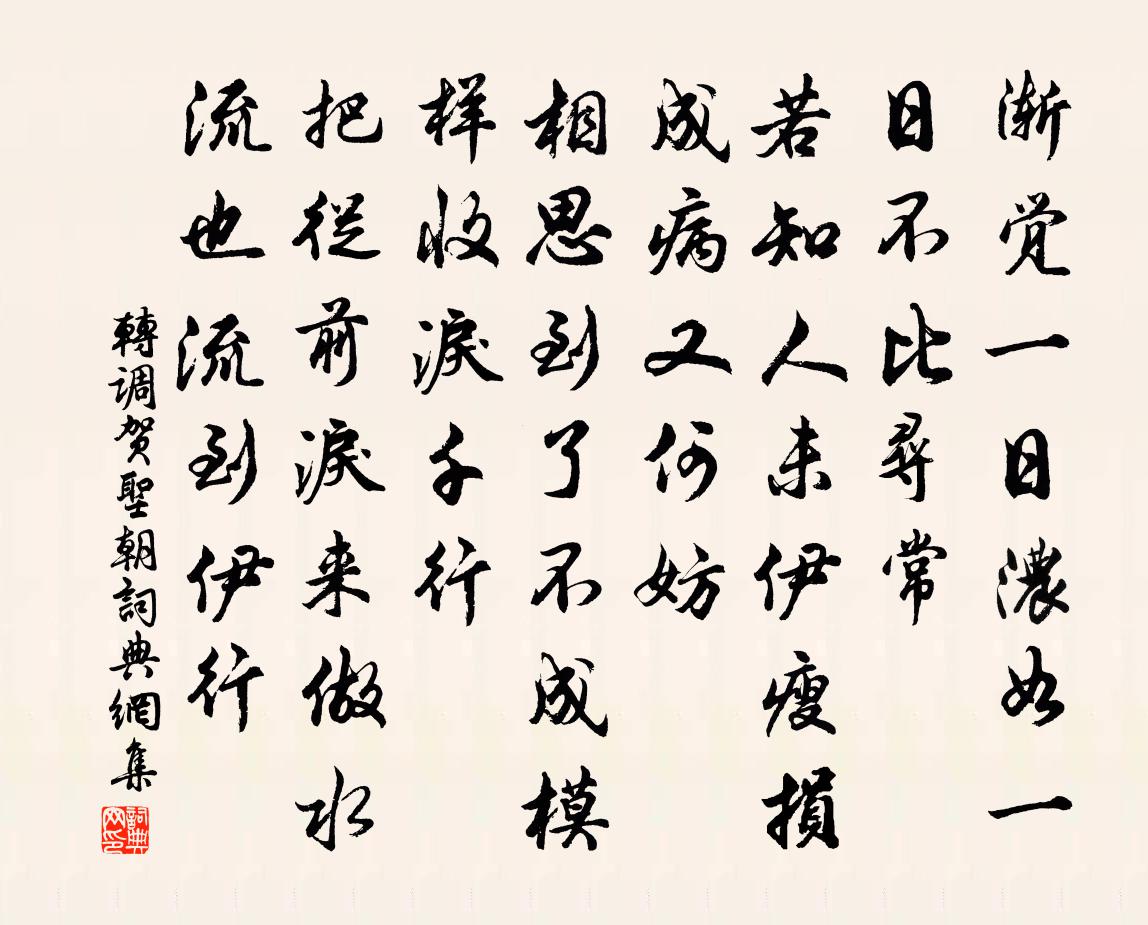 渐觉一日濃如一
日不比尋常
若知人未伊瘦損
成病又何妨
相思到了不成模
样收淚千行
把從前淚来做水
流也流到伊行
轉调贺聖朝詞典網集
詞典网印